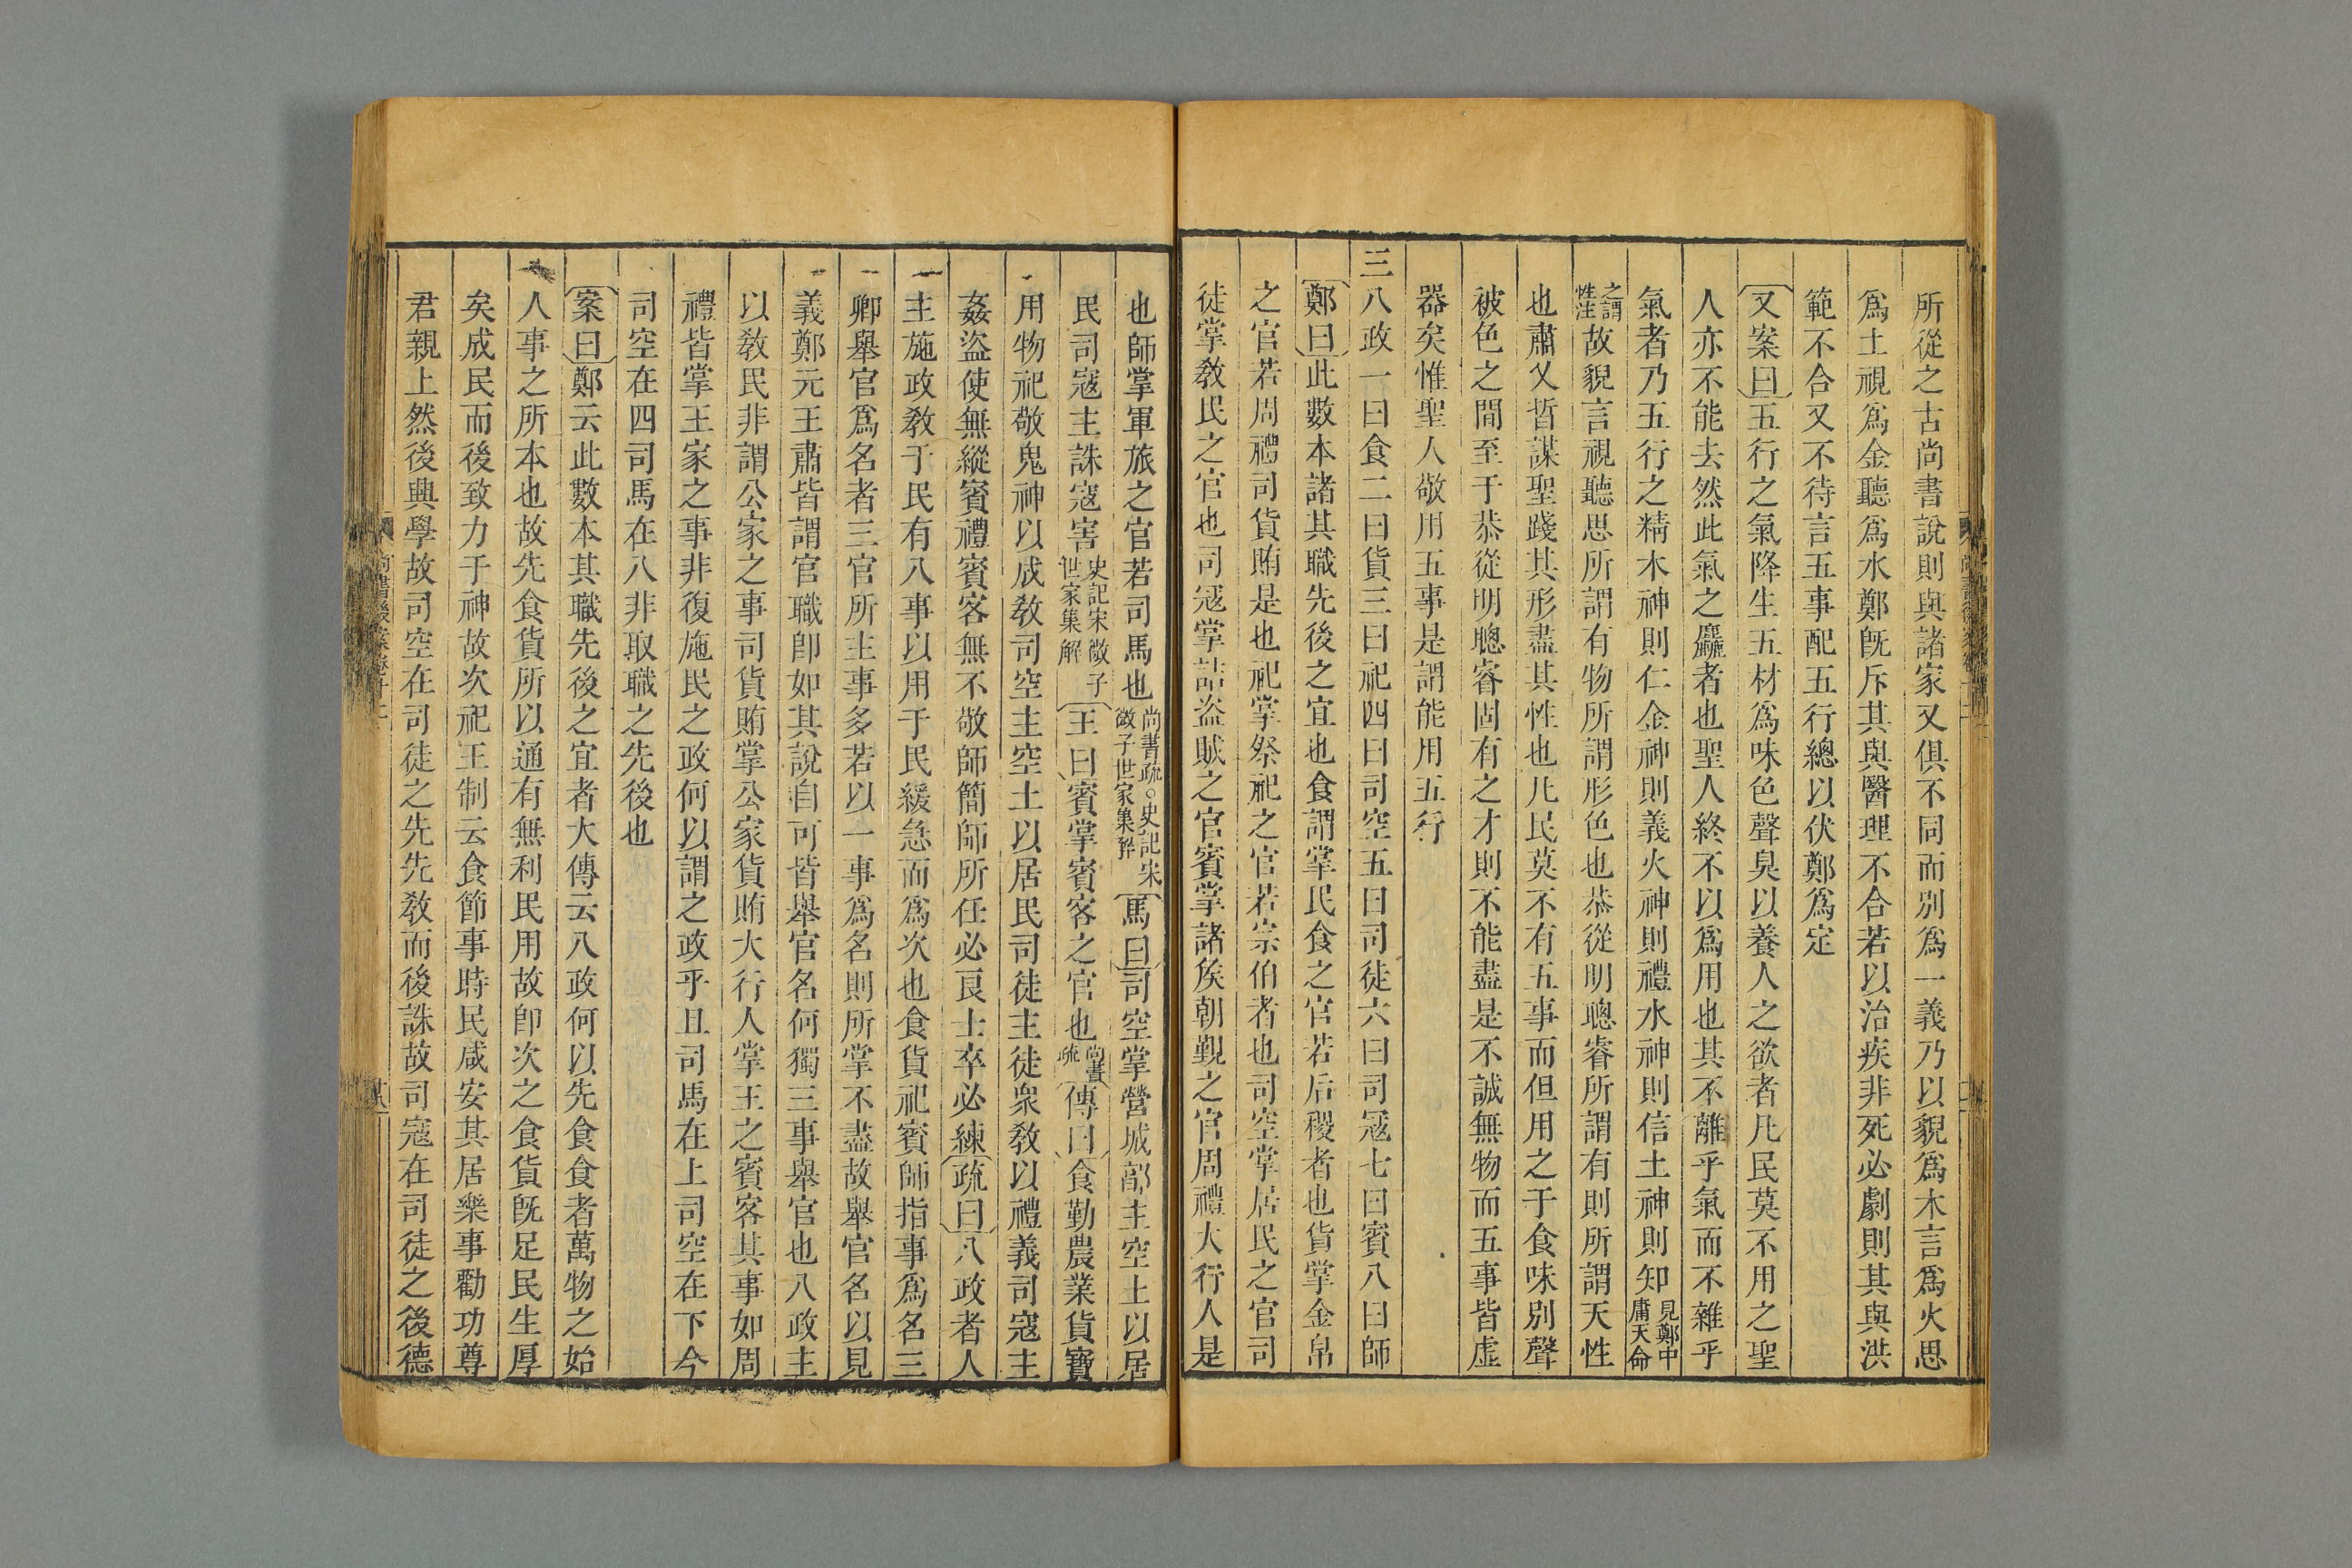 所從之古尚書說則與諸家又俱不同而別爲一義乃以貌爲木言爲火思
爲土視爲金聽爲水鄭旣斥其與醫理不合若以治疾非死必劇則其與洪
範不合又不待言五事配五行總以伏鄭爲定
又案曰五行之氣降生五材爲味色聲臭以養人之欲者凡民莫不用之聖
人亦不能去然此氣之麤者也聖人終不以爲用也其不離乎氣而不雜乎
氣者乃五行之精木神則仁金神則義火神則禮水神則信土神則知見鄭中庸天命
之謂性注故貌言視聽思所謂有物所謂形色也恭從明聰睿所謂有則所謂天性
也肅乂晢謀聖踐其形盡其性也凡民莫不有五事而但用之于食味別聲
被色之間至于恭從明聰睿固有之才則不能盡是不誠無物而五事皆虛
器矣惟聖人敬用五事是謂能用五行
三八政一曰食二曰貨三曰祀四曰司空五曰司徒六曰司寇七曰賓八曰師
鄭曰此數本諸其職先後之宜也食謂掌民食之官若后稷者也貨掌金帛
之官若周禮司貨賄是也祀掌祭祀之官若宗伯者也司空掌居民之官司
徒掌教民之官也司寇掌詰盜賊之官賓掌諸侯朝覲之官周禮大行人是
也師掌軍旅之官若司馬也尚書疏○史記宋微子世家集解馬曰司空掌營城郭主空土以居
民司寇主誅寇害史記宋微子世家集解王曰賓掌賓客之官也尚書疏傳曰食勤農業貨寶
用物祀敬鬼神以成教司空主空土以居民司徒主徒衆教以禮義司寇主
姦盜使無縱賓禮賓客無不敬師簡師所任必良士卒必練疏曰八政者人
主施政教于民有八事以用于民緩急而爲次也食貨祀賓師指事爲名三
卿舉官爲名者三官所主事多若以一事爲名則所掌不盡故舉官名以見
義鄭元王肅皆謂官職卽如其說自可皆舉官名何獨三事舉官也八政主
以敎民非謂公家之事司貨賄掌公家貨賄大行人掌王之賓客其事如周
禮皆掌王家之事非復施民之政何以謂之政乎且司馬在上司空在下今
司空在四司馬在八非取職之先後也
案曰鄭云此數本其職先後之宜者大傳云八政何以先食食者萬物之始
人事之所本也故先食貨所以通有無利民用故卽次之食貨旣足民生厚
矣成民而後致力于神故次祀王制云食節事時民咸安其居樂事勸功尊
君親上然後興學故司空在司徒之先先教而後誅故司寇在司徒之後德